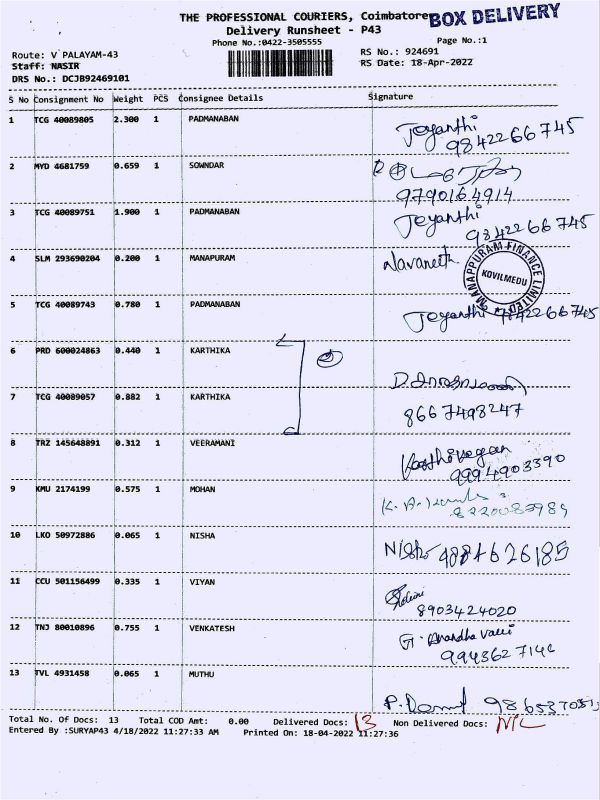 THE PROFESSIONAL COURIERS, Coimbatore
BOX DELIVERY
Delivery Runsheet - P43
Phone No.:0422-3505555
Page No.:1
Route: V PALAYAM-43
RS No.: 924691
Staff: NASIR
RS Date: 18-Apr-2022
DRS No.: DCJB92469101
S No Consignment No Weight PCS Consignee Details Signature
1 TCG 40089805 2.300 1 PADMANABAN Jeyanthi
9842266745
2 MYD 4681759 0.659 1 SOWNDAR
9790164914
3 TCG 40089751 1.900 1 PADMANABAN Jeyanthi
9842266745
4 SLM 293690204 0.200 1 MANAPURAM Navaneeth
MANAPPURAM FINANCE LIMITED
KOVILMEDU
5 TCG 40089743 0.780 1 PADMANABAN Jeyanthi 9842266745
6 PRD 600024863 0.440 1 KARTHIKA
7 TCG 40089057 0.882 1 KARTHIKA
8667498247
8 TRZ 145648891 0.312 1 VEERAMANI Karthikeyan
9994903390
9 KMU 2174199 0.575 1 MOHAN
10 LKO 50972886 0.065 1 NISHA
11 CCU 501156499 0.335 1 VIYAN
8903424020
12 TNJ 80010896 0.755 1 VENKATESH G. Anandha Valli
13 TVL 4931458 0.065 1 MUTHU
Total No. Of Docs: 13 Total COD Amt: 0.00 Delivered Docs: 13 Non Delivered Docs: NIL
Entered By :SURYAP43 4/18/2022 11:27:33 AM Printed On: 18-04-2022 11:27:36